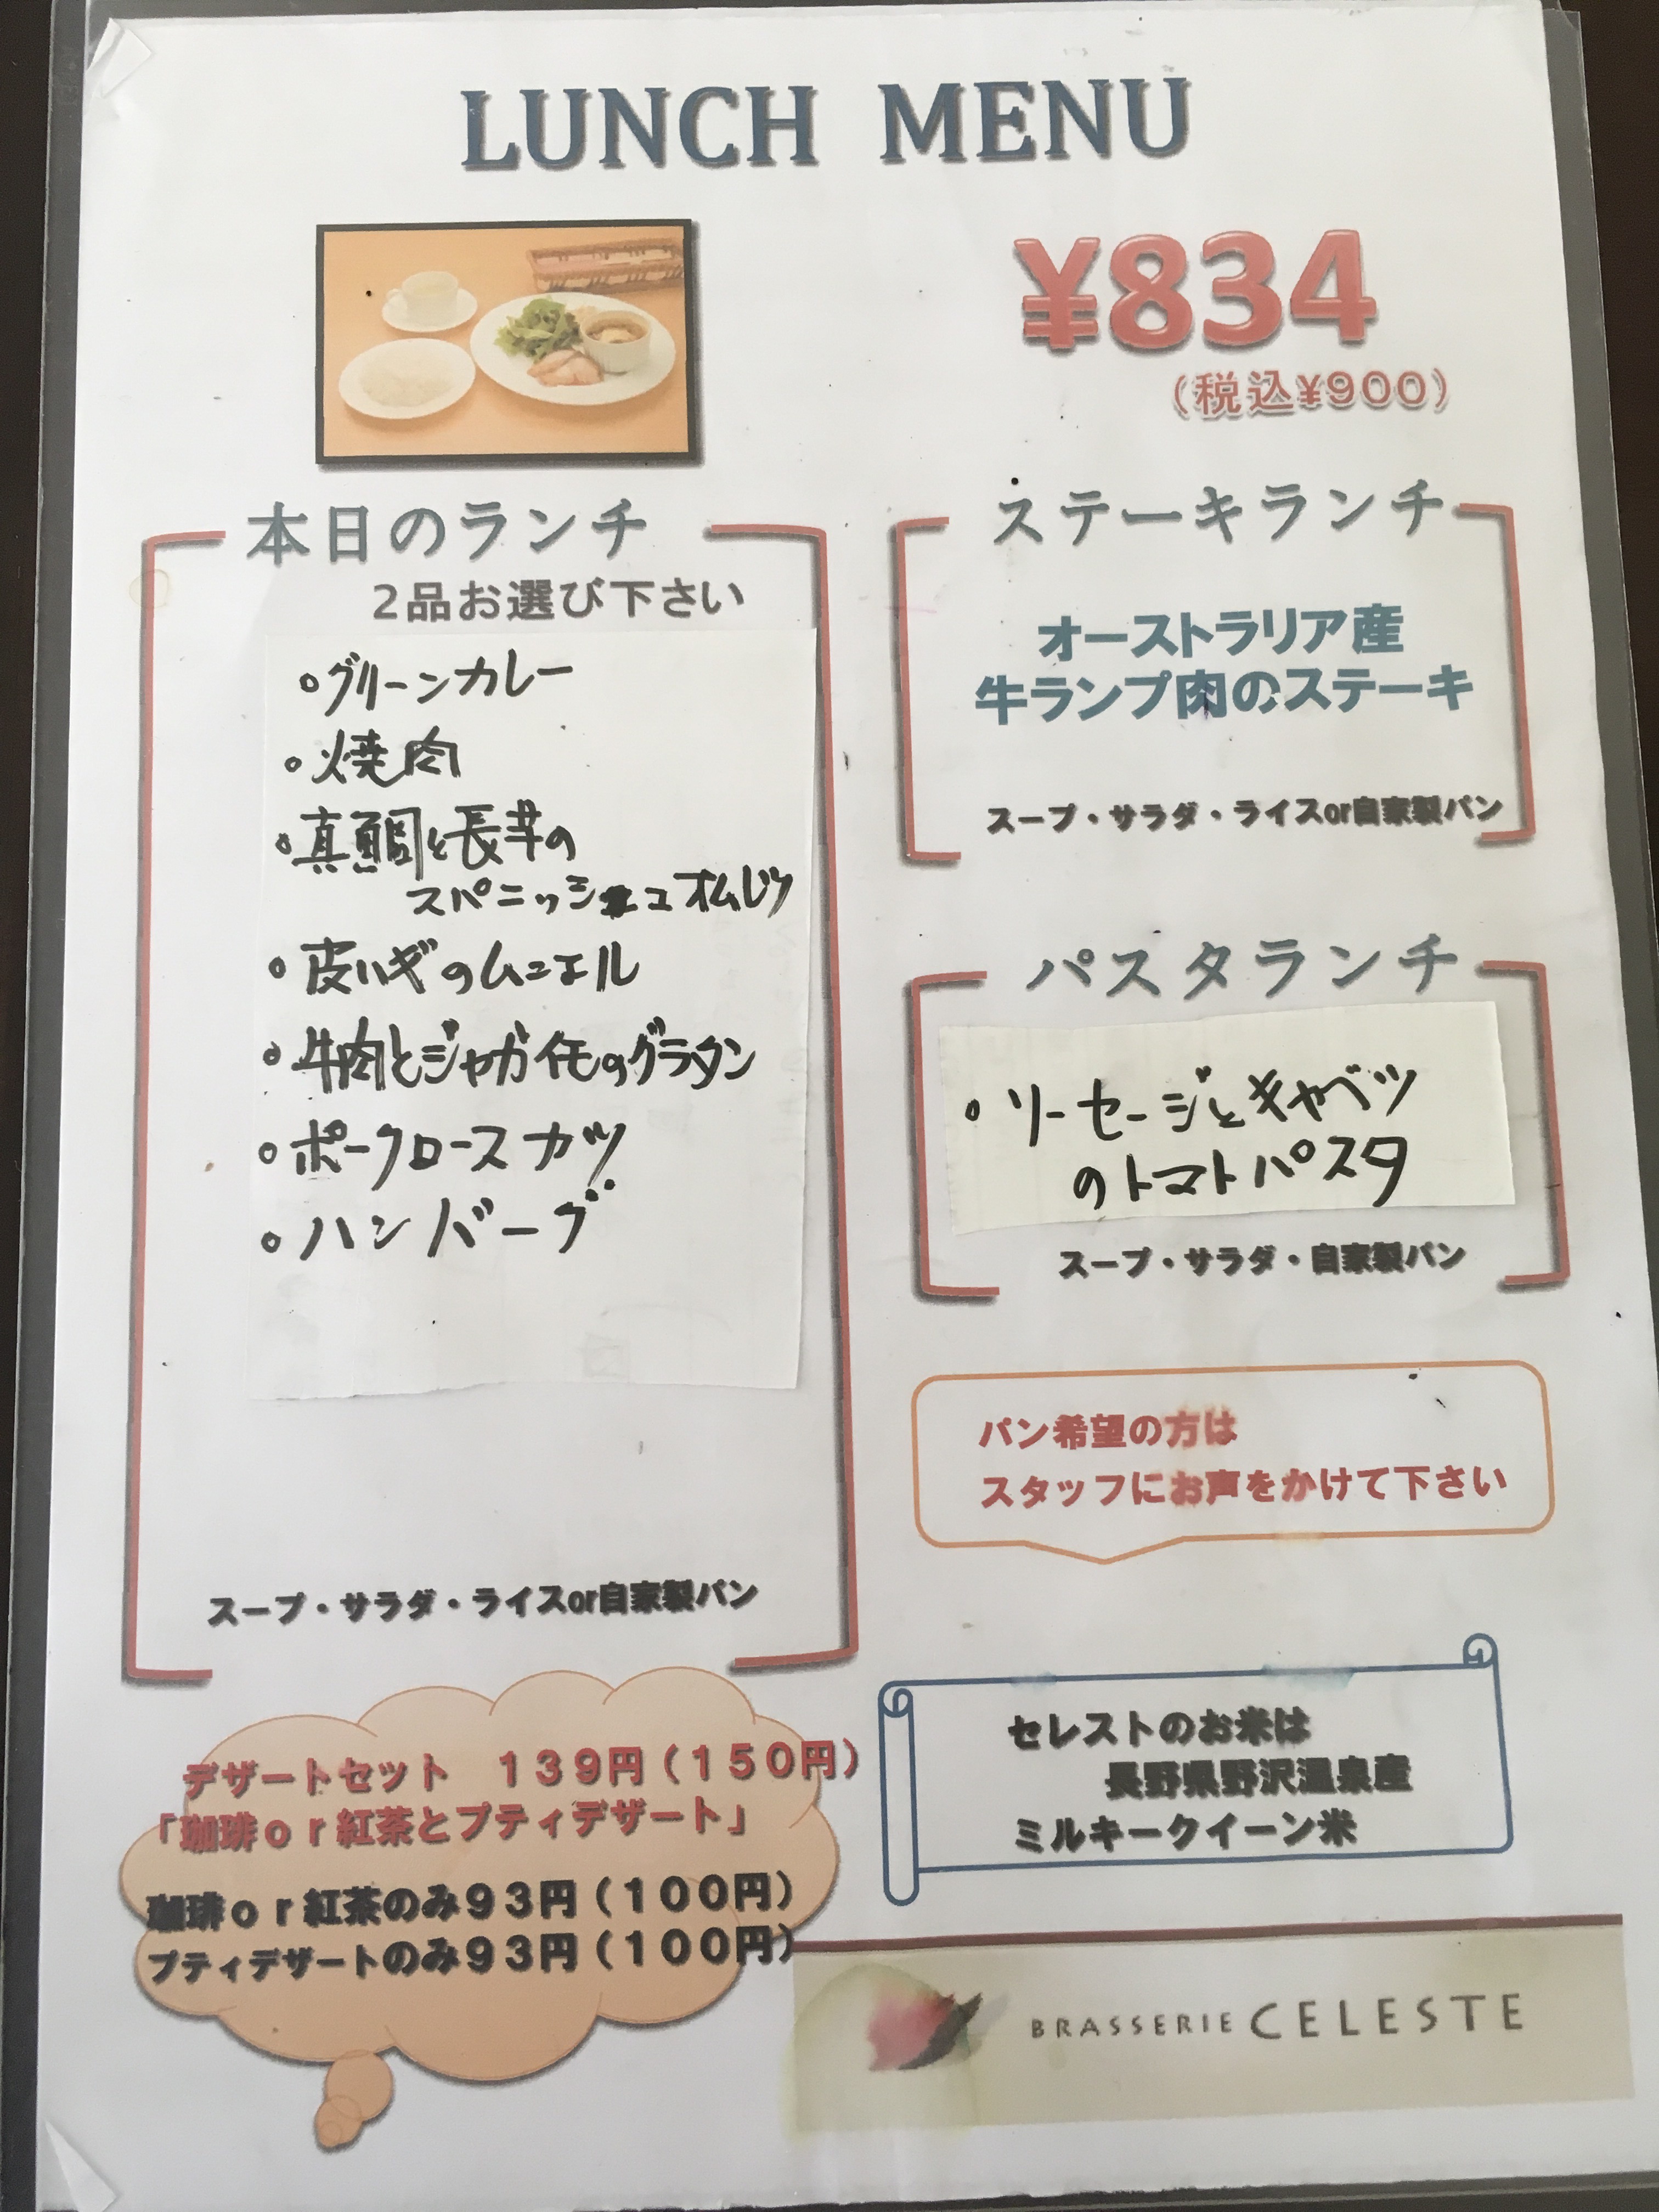 LUNCH MENU
¥834
(税込¥900)
本日のランチ
2品お選び下さい
・グリーンカレー
・焼肉
・真鯛と長芋の
スパニッシュオムレツ
・皮ハギのムニエル
・牛肉とジャガイモのグラタン
・ポークロースカツ
・ハンバーグ
スープ・サラダ・ライスor自家製パン
ステーキランチ
オーストラリア産
牛ランプ肉のステーキ
スープ・サラダ・ライスor自家製パン
パスタランチ
・ソーセージとキャベツ
のトマトパスタ
スープ・サラダ・自家製パン
パン希望の方は
スタッフにお声をかけて下さい
デザートセット　139円(150円)
「珈琲or紅茶とプティデザート」
珈琲or紅茶のみ93円(100円)
プティデザートのみ93円(100円)
セレストのお米は
長野県野沢温泉産
ミルキークイーン米
BRASSERIE CELESTE